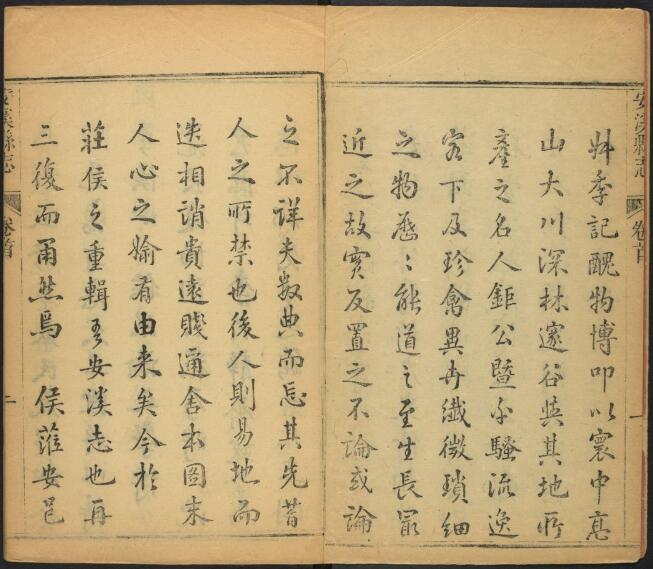 安溪縣志
卷首
一
艸季記醜物博叩以寰中髙
山大川深林邃谷與其地所
產之名人鉅公暨乎騷流逸
客下及珍禽異卉纖微瑣細
之物歷〻能道之至生長最
近之故實反置之不論或論
之不詳夫數典而忘其先昔
人之所禁也後人則易地而
迭相誚貴遠賤邇舍本圖末
人心之媮有由来矣今於
莊侯之重輯吾安溪志也再
三復而甬然焉 侯蒞安邑
安溪縣志
卷首
二